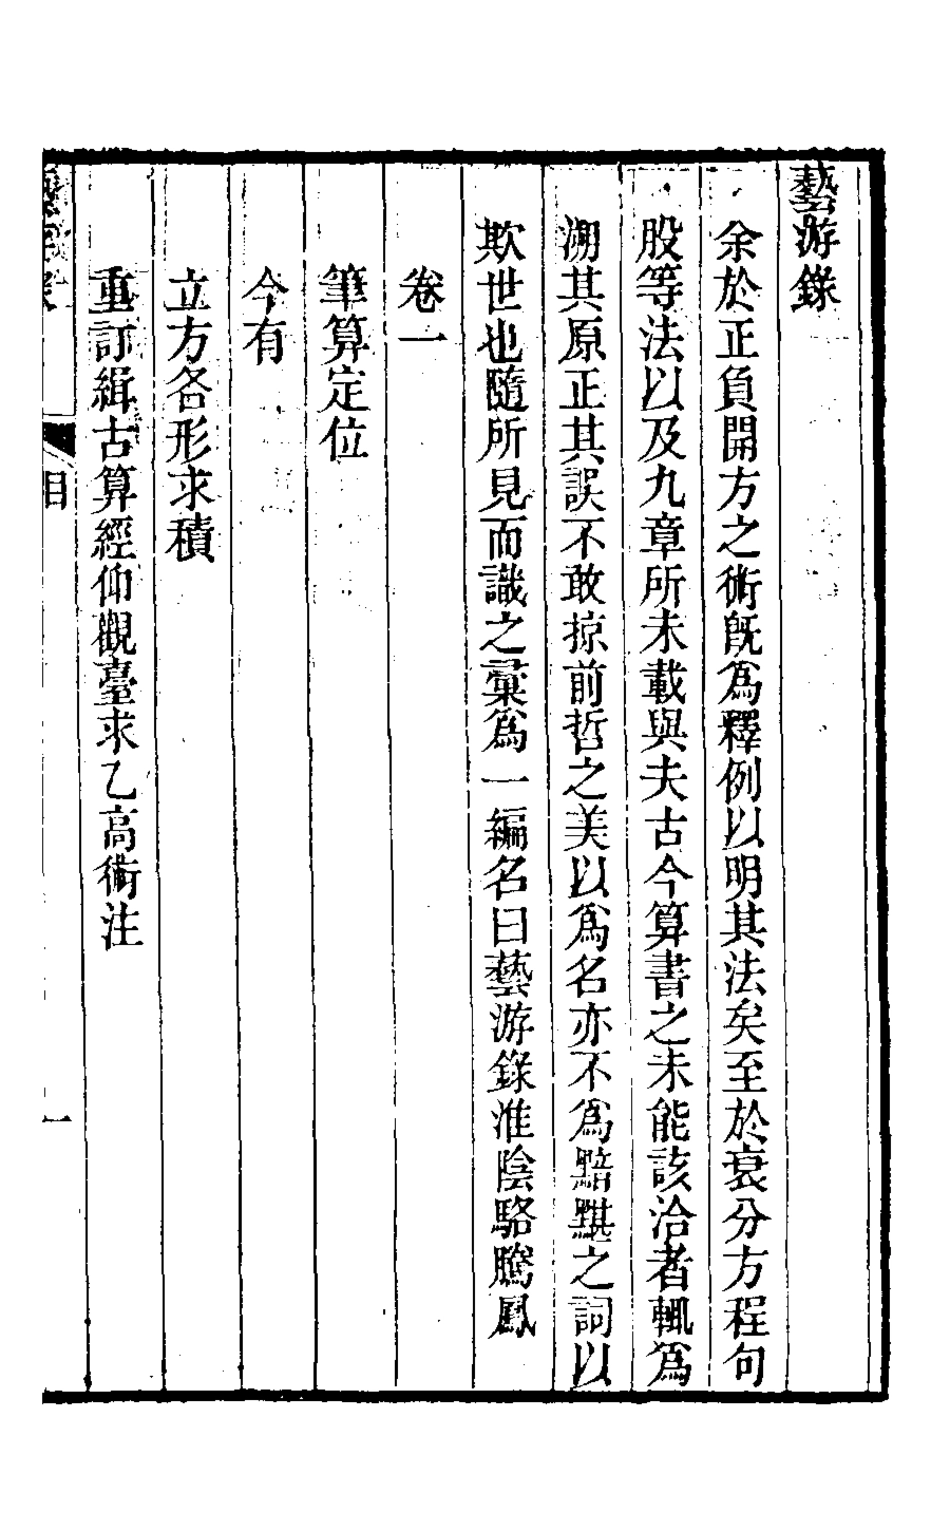 藝游錄
余於正負開方之術旣爲釋例以明其法矣至於衰分方程句
股等法以及九章所未載與夫古今算書之未能該洽者輒爲
溯其原正其誤不敢掠前哲之美以爲名亦不爲黯黮之詞以
欺世也隨所見而識之彙爲一編名曰藝游錄淮陰駱騰鳳
卷一
筆算定位
今有
立方各形求積
重訂緝古算經仰觀臺求乙高術注
目
一